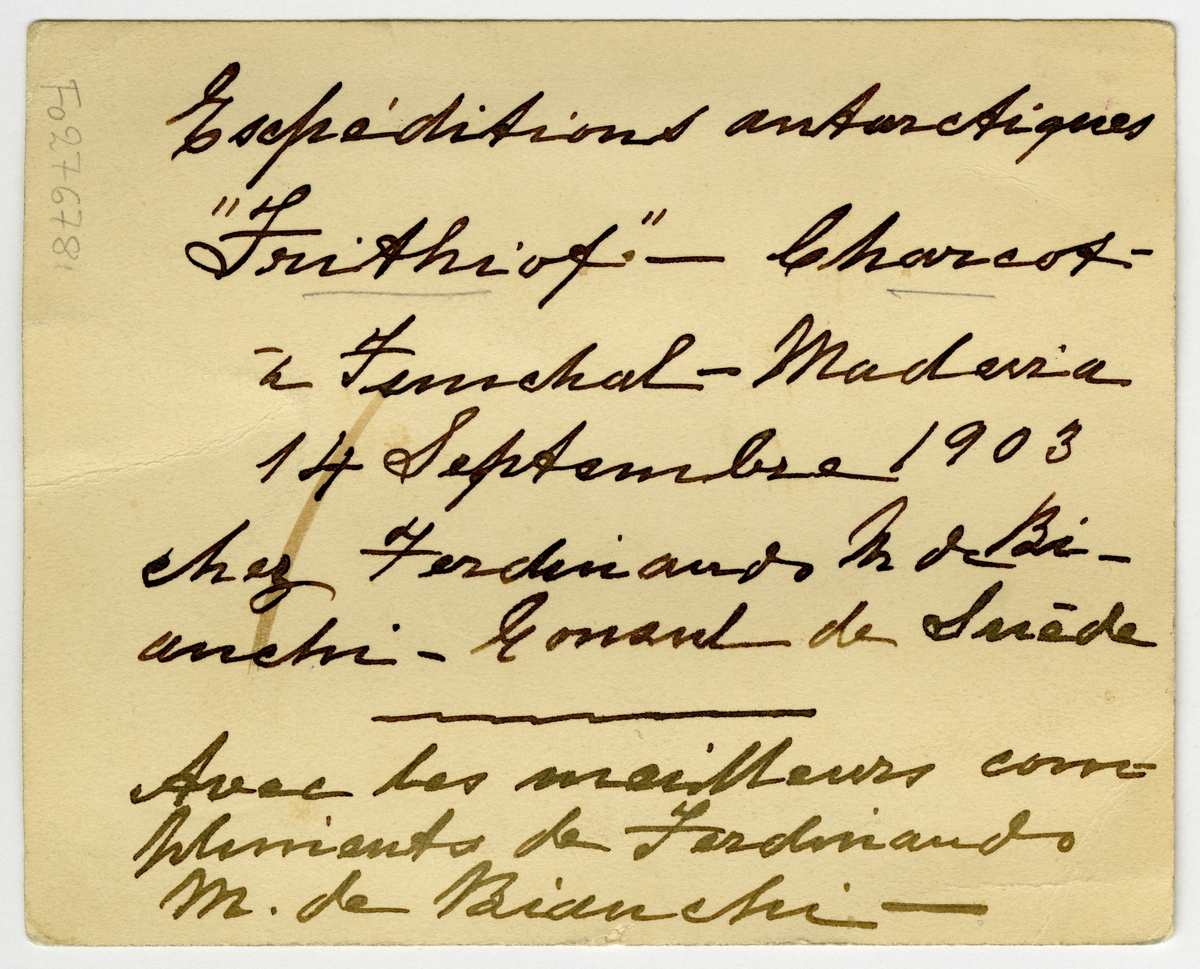 Expéditions antarctiques
"Frithiof" — Charcot-
à Funchal - Madeira
14 Septembre 1903
chez Ferdinando M de Bi-
anchi - Consul de Suède
Avec les meilleurs com-
pliments de Ferdinando
M. de Bianchi —
Fo27678